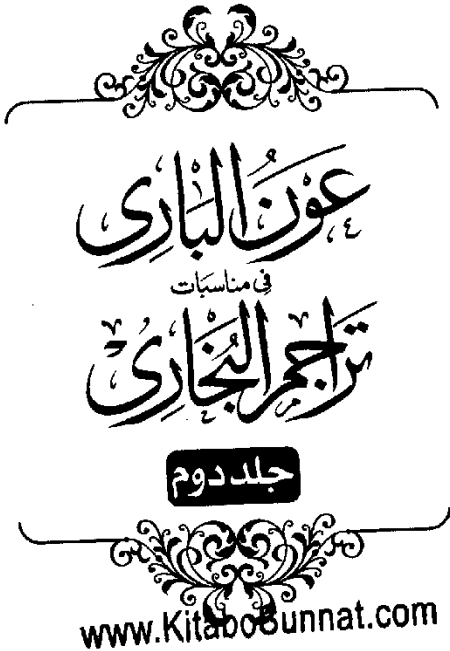 عَوْنَ الْبَارِی
فی مناسبات
تراجم البُخَارِیُ
جلد دوم
www.KitaboSunnat.com